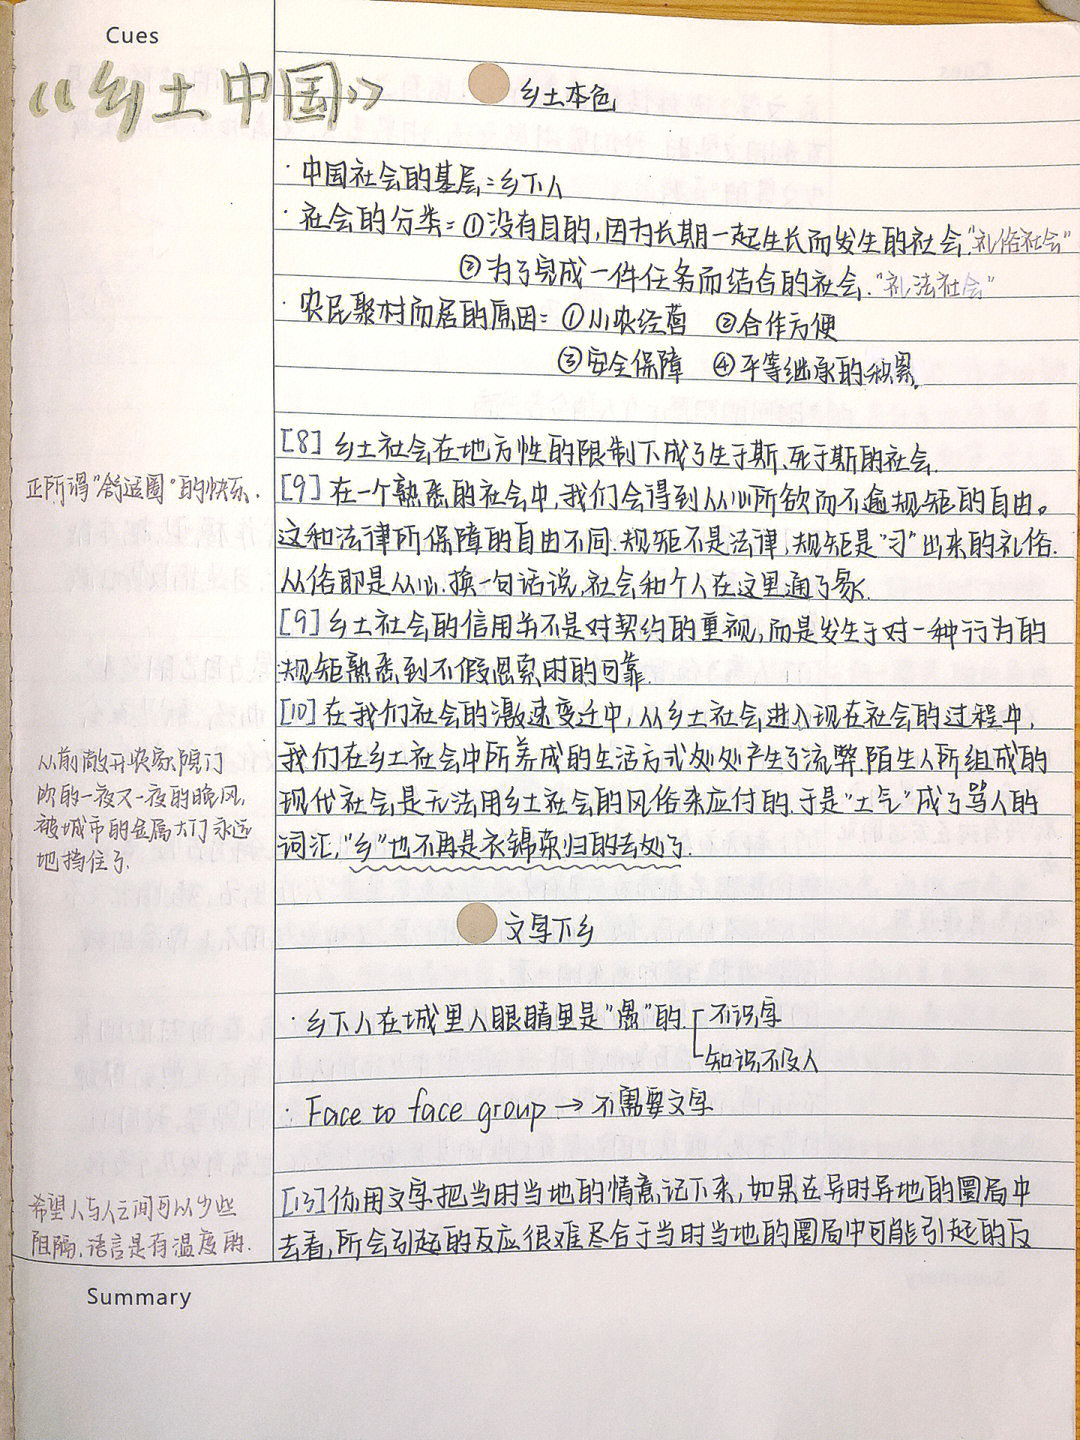 Cues
《乡土中国》
乡土本色
·中国社会的基层=乡下人
·社会的分类=①没有目的,因为长期一起生长而发生的社会."礼俗社会"
②为了完成一件任务而结合的社会."礼法社会"
·农民聚村而居的原因=①小农经营 ②合作方便
③安全保障 ④平等继承的积累.
[8]乡土社会在地方性的限制下成了生于斯、死于斯的社会.
正所谓"舒适圈"的快乐.
[9]在一个熟悉的社会中,我们会得到从心所欲而不逾规矩的自由。
这和法律所保障的自由不同.规矩不是法律,规矩是"习"出来的礼俗.
从俗即是从心.换一句话说,社会和个人在这里通了家.
[9]乡土社会的信用并不是对契约的重视,而是发生于对一种行为的
规矩熟悉到不假思索时的可靠.
[10]在我们社会的激速变迁中,从乡土社会进入现在社会的过程中,
我们在乡土社会中所养成的生活方式处处产生了流弊.陌生人所组成的
现代社会是无法用乡土社会的风俗来应付的.于是"土气"成了骂人的
词汇,"乡"也不再是衣锦荣归的去处了.
从前敞开农家院门
吹的一夜又一夜的晚风,
被城市的金属大门永远
地挡住了.
文字下乡
·乡下人在城里人眼睛里是"愚"的.不识字
知识不及人
·Face to face group→不需要文字
[13]你用文字把当时当地的情意记下来,如果在异时异地的圜局中
去看,所会引起的反应很难尽合于当时当地的圜局中可能引起的反
希望人与人之间可以少些
阻隔,语言是有温度的.
Summary